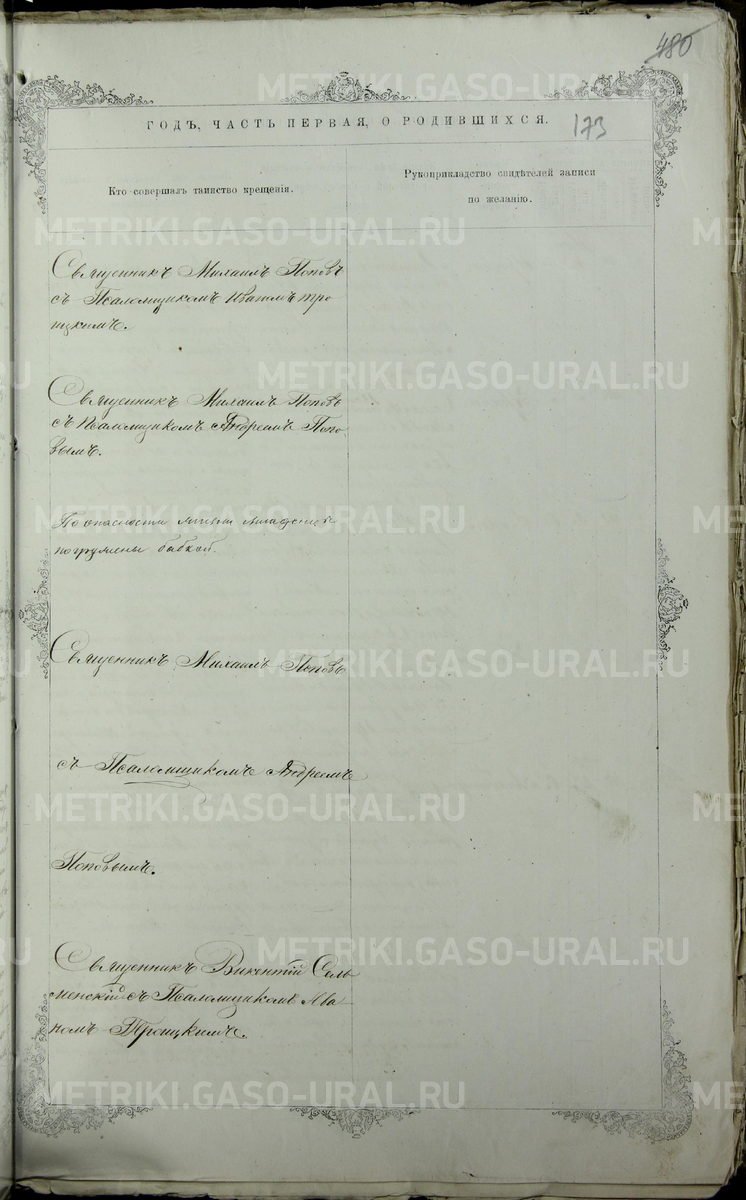 480
ГОДЪ, ЧАСТЬ ПЕРВАЯ, О РОДИВШИХСЯ.
173
Кто совершалъ таинство крещенія.
Рукоприкладство свидѣтелей записи
по желанію.
Священникъ Михаилъ Поповъ
съ Псаломщикомъ Иваномъ Тро
ицкимъ.
Священникъ Михаилъ Поповъ
съ Псаломщикомъ Андреемъ Попо
вымъ.
По опасности жизни младенцев
погружены бабкой.
Священникъ Михаилъ Поповъ
съ Псаломщикомъ Андреемъ
Поповымъ.
Священникъ Викентій Сель
менскій съ Псаломщикомъ Ива
номъ Троицкимъ.
METRIKI.GASO-URAL.RU